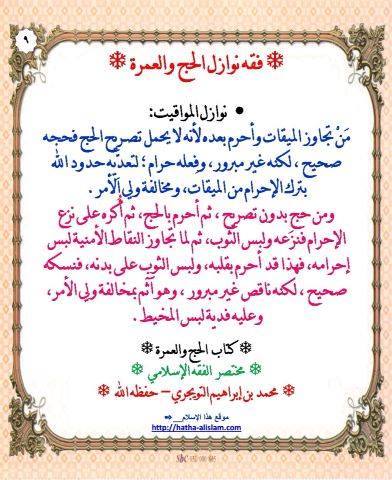 ٩
❄ فقه نوازل الحج والعمرة ❄
• نوازل المواقيت:
مَنْ تجاوز الميقات وأحرم بعده لأنه لا يحمل تصريح الحج فحجه
صحيح ، لكنه غير مبرور ، وفعله حرام ؛ لتعدّيه حدود الله
بترك الإحرام من الميقات، ومخالفة ولي الأمر .
ومن حج بدون تصريح ، ثم أحرم بالحج، ثم أُكره على نزع
الإحرام فنزعه ولبس الثوب، ثم لما تجاوز النقاط الأمنية لبس
إحرامه، فهذا قد أحرم بقلبه، ولبس الثوب على بدنه، فنسكه
صحيح ، لكنه ناقص غير مبرور ، وهو آثم بمخالفة ولي الأمر ،
وعليه فدية لبس المخيط .
❄ كتاب الحج والعمرة ❄
❄ مختصر الفقه الإسلامي ❄
❄ محمد بن إبراهيم التويجري – حفظه الله ❄
موقع هذا الإسلام ⇐
http://hatha-alislam.com